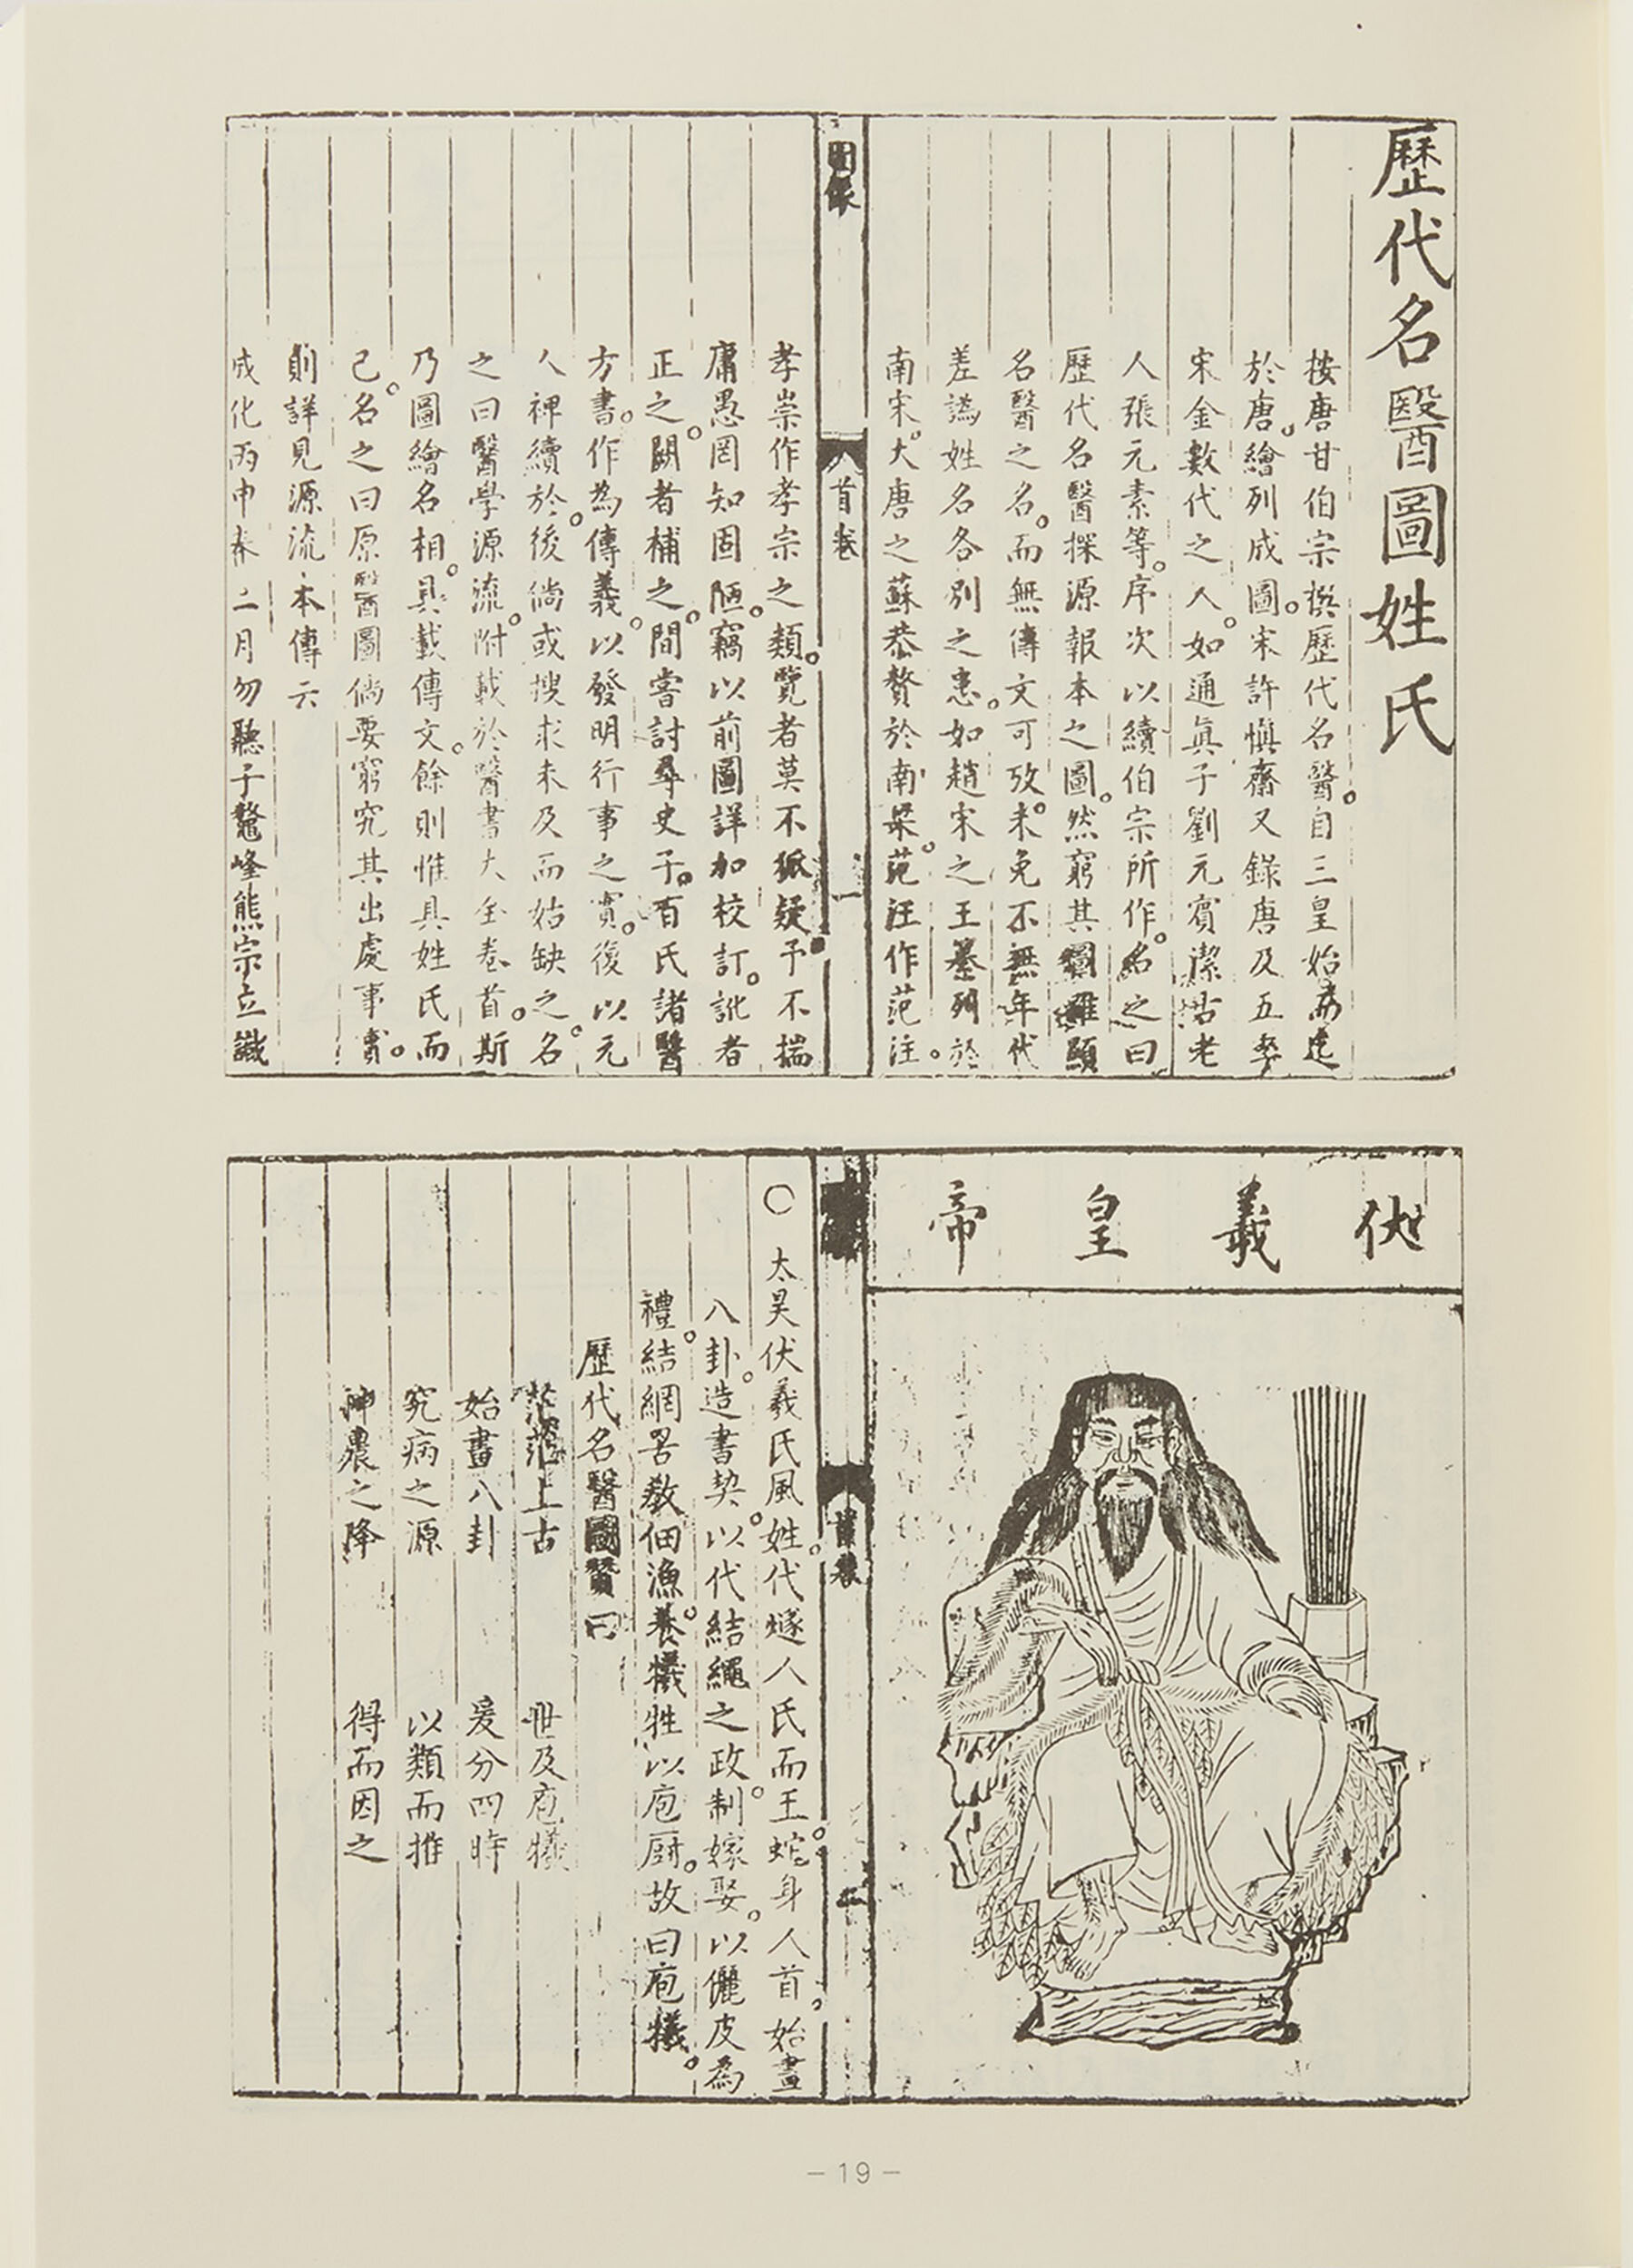 歷代名醫圖姓氏
按唐甘伯宗撰歷代名醫。自三皇始而迄
於唐。繪列成圖。宋許愼齋又錄唐及五季
宋金數代之人。如通眞子劉元賓潔古老
人張元素等。序次以續伯宗所作。名之曰
歷代名醫探源報本之圖。然窮其圖雖顯
名醫之名。而無傳文可攷。未免不無年代
差譌姓名各別之患。如趙宋之王纂列於
南宋。大唐之蘇恭贅於南梁。范汪作范注。
圖像
首卷
一
孝崇作孝宗之類。覽者莫不狐疑予不揣
庸愚罔知固陋。竊以前圖詳加校訂。訛者
正之。闕者補之。間嘗討尋史子。百氏諸醫
方書。作為傳義。以發明行事之實。復以元
人裨續於後。倘或搜求未及而姑缺之。名
之曰醫學源流。附載於醫書大全卷首。斯
乃圖繪名相。具載傳文。餘則惟具姓氏而
已。名之曰原醫圖倘要窮究其出處事實。
則詳見源流本傳云
成化丙申春二月勿聽子鼇峰熊宗立識
伏羲皇帝
首卷
二
○太昊伏羲氏風姓。代燧人氏而王。蛇身人首。始畫
八卦。造書契。以代結繩之政。制嫁娶。以儷皮為
禮。結網罟教佃漁。養犧牲以庖厨。故曰庖犧。
歷代名醫圖贊曰
茫茫上古　世及庖犧
始畫八卦　爰分四時
究病之源　以類而推
神農之降　得而因之
－19－